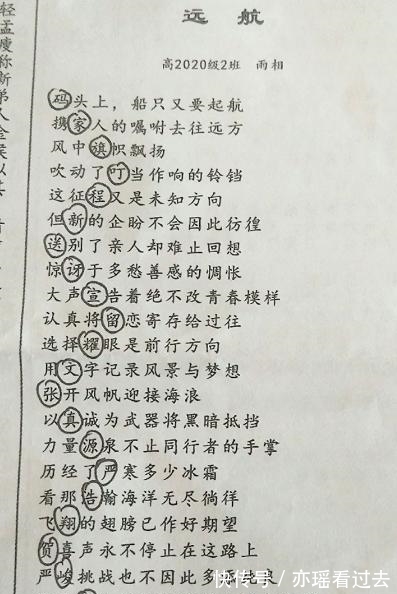 远航
高2020级2班 雨相
码头上，船只又要起航
携家人的嘱咐去往远方
风中旗帜飘扬
吹动了叮当作响的铃铛
这征程又是未知方向
但新的企盼不会因此彷徨
送别了亲人却难止回想
惊讶于多愁善感的惆怅
大声宣告着绝不改青春模样
认真将留恋寄存给过往
选择耀眼是前行方向
用文字记录风景与梦想
张开风帆迎接海浪
以真诚为武器将黑暗抵挡
力量源泉不止同行者的手掌
历经了严寒多少冰霜
看那浩瀚海洋无尽徜徉
飞翔的翅膀已作好期望
贺喜声永不停止在这路上
严峻挑战也不因此多
快传号/亦瑶看过去
轻
孟
度
称
新
弟
人